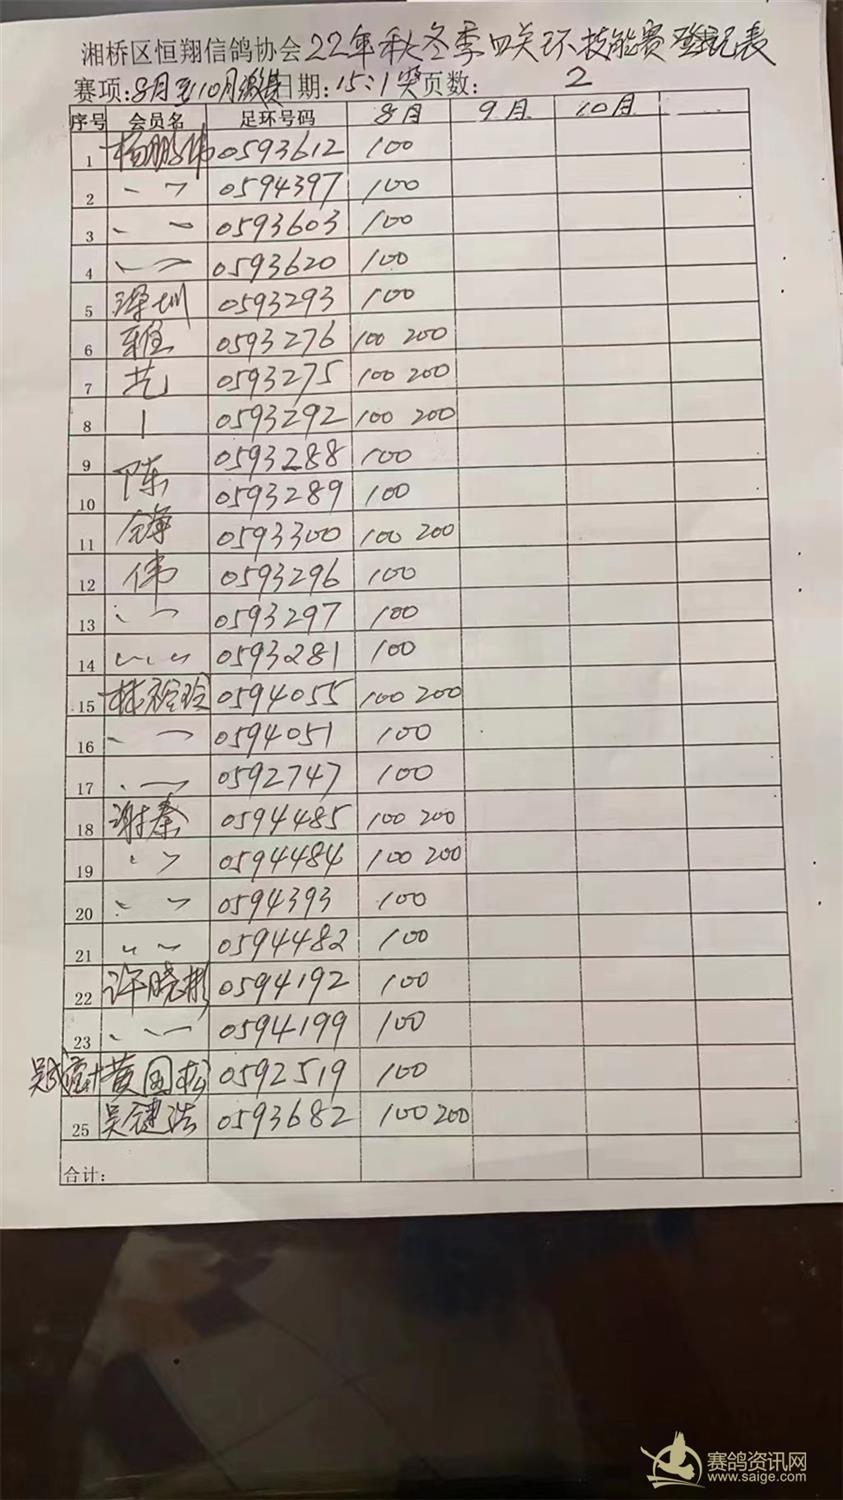 湘桥区恒翔信鸽协会22年秋冬季四关环技能赛登记表
赛项:8月至10月缴费日期:15:1奖页数: 2
序号 会员名 足环号码 8月 9月 10月
1 杨鹏伟 0593612 100
2 〃 0594397 100
3 〃 0593603 100
4 〃 0593620 100
5 深圳 0593293 100
6 雅 0593276 100 200
7 艺 0593275 100 200
8 | 0593292 100 200
9 0593288 100
10 陈 0593289 100
11 锋 0593300 100 200
12 伟 0593296 100
13 〃 0593297 100
14 〃 0593281 100
15 林 0594055 100 200
16 〃 0594051 100
17 〃 0592747 100
18 谢秦 0594485 100 200
19 〃 0594484 100 200
20 〃 0594393 100
21 〃 0594482 100
22 许晓彬 0594192 100
23 〃 0594199 100
黄国松 0592519 100
25 吴健浩 0593682 100 200
合计:
赛鸽资讯网
www.saige.com